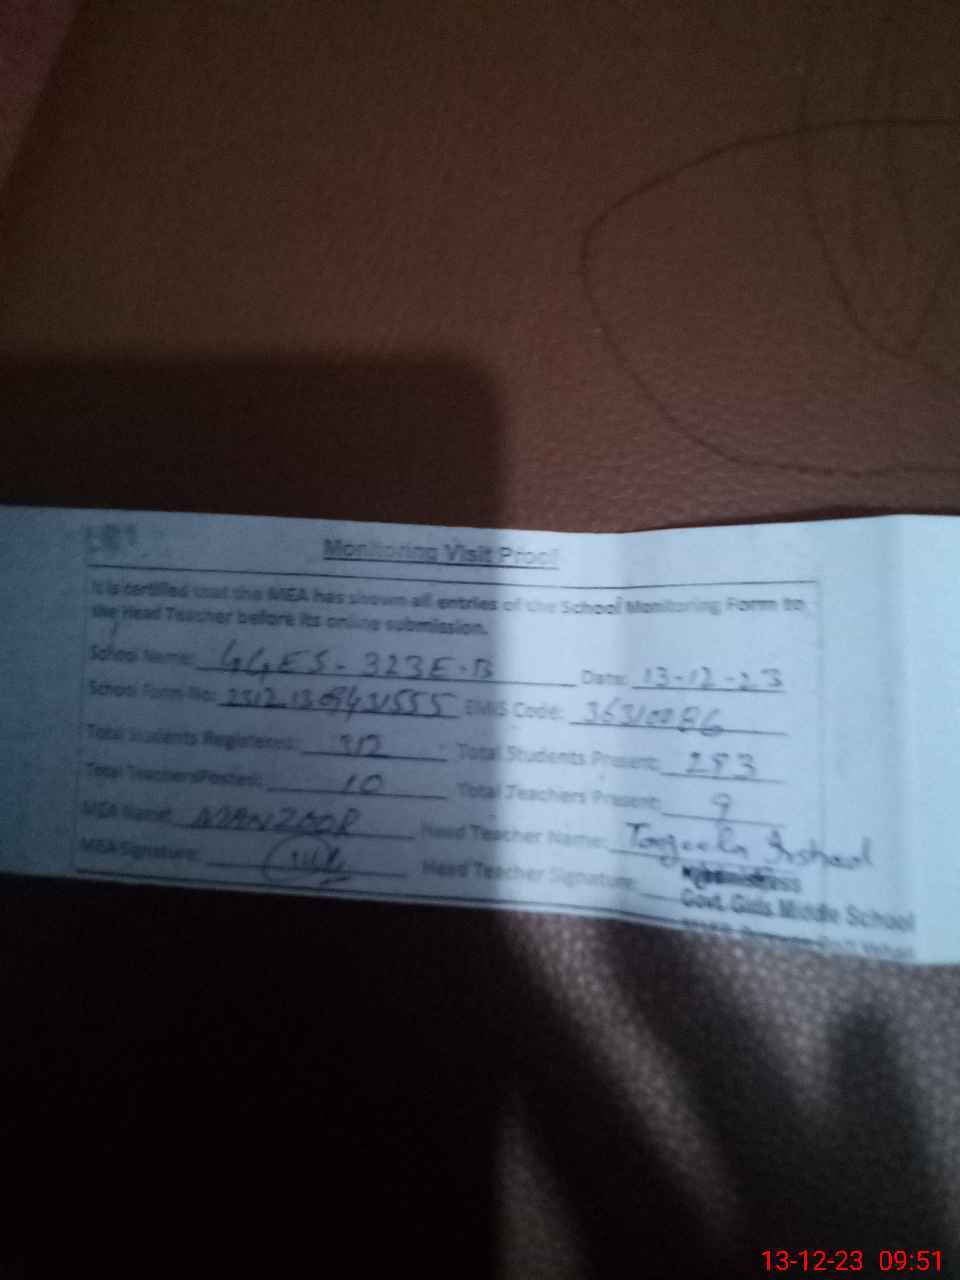 Monitoring Visit Proof
It is certified that the MEA has shown all entries of the School Monitoring Form to
the Head Teacher before its online submission.
School Name: GGES - 323E.B Date: 13-12-23
School Form No: EMIS Code: 36310086
Total Students Registered: 312 Total Students Present: 293
Total Teachers Posted: 10 Total Teachers Present: 9
MEA Name: MANZOOR Head Teacher Name:
MEA Signature: Head Teacher Signature:
Govt. Girls Middle School
13-12-23 09:51